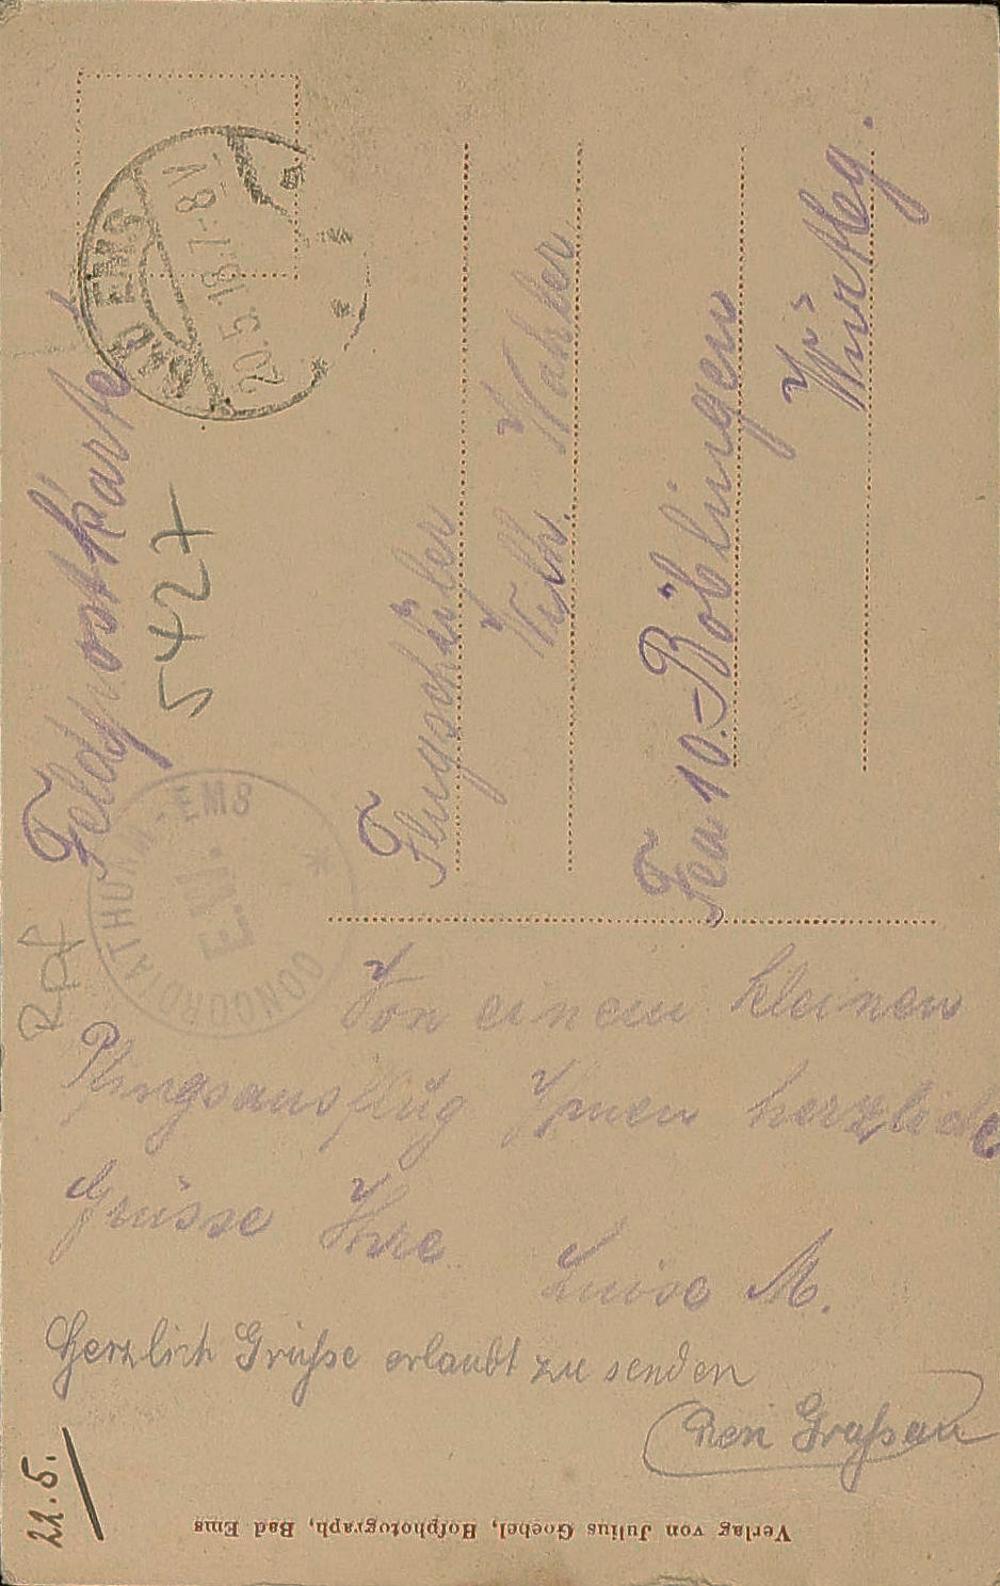 Feldpostkarte
5427
BAD EMS
20.5.18.7-8 V
CONCORDIATHURM-EMS
E.V.
Flugschüler
Wilh. Wahler
Fea 10.-Böblingen
Württbg.
Von einem kleinen
Pfingsausflug Ihnen herzliche
Grüsse Ihre
Luise M.
Herzlich Grüsse erlaubt zu senden
22.5.
Verlag von Julius Goebel, Hofphotograph, Bad Ems